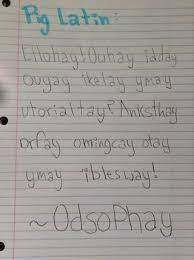 Pig Latin:
Ellohay! Ouhay idday
ouyay ikelay ymay
utorialtay? Anksthay
orfay omingcay otay
ymay iblesway!
~OdsoPhay